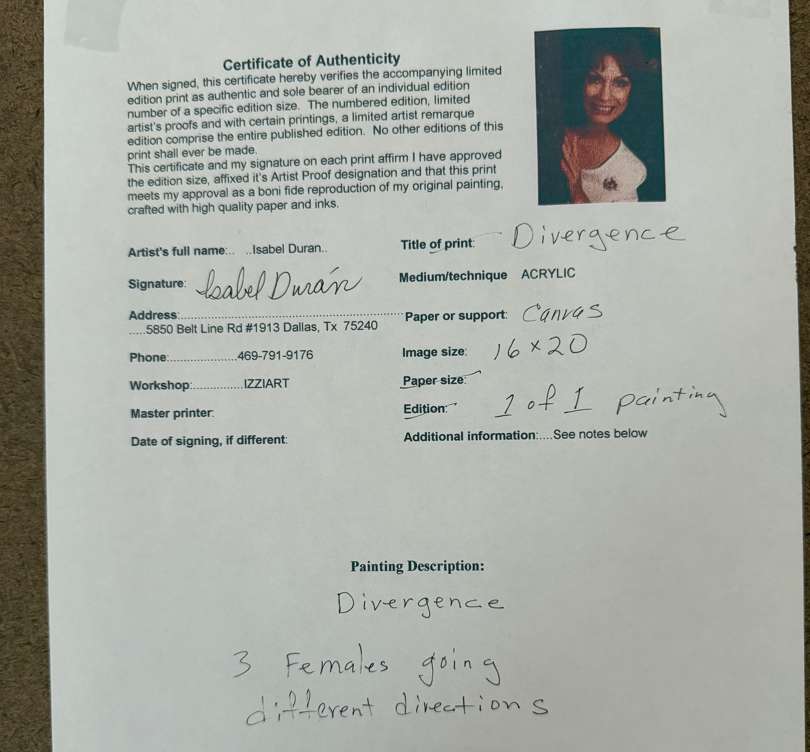 Certificate of Authenticity
When signed, this certificate hereby verifies the accompanying limited
edition print as authentic and sole bearer of an individual edition
number of a specific edition size. The numbered edition, limited
artist's proofs and with certain printings, a limited artist remarque
edition comprise the entire published edition. No other editions of this
print shall ever be made.
This certificate and my signature on each print affirm I have approved
the edition size, affixed it's Artist Proof designation and that this print
meets my approval as a boni fide reproduction of my original painting,
crafted with high quality paper and inks.
Artist's full name:.. ..Isabel Duran..
Signature: Isabel Durán
Address:..........................................................
.....5850 Belt Line Rd #1913 Dallas, Tx 75240
Phone:.....................469-791-9176
Workshop:...............IZZIART
Master printer:
Date of signing, if different:
Title of print: Divergence
Medium/technique ACRYLIC
Paper or support: Canvas
Image size: 16 x 20
Paper size:
Edition: 1 of 1 painting
Additional information:....See notes below
Painting Description:
Divergence
3 Females going
different directions